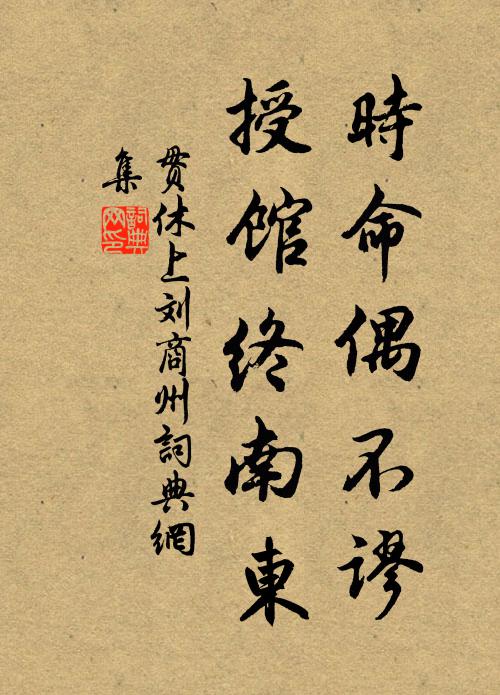 時命偶不謬
授館終南東
贯休上刘商州詞典網
集
詞典
网印